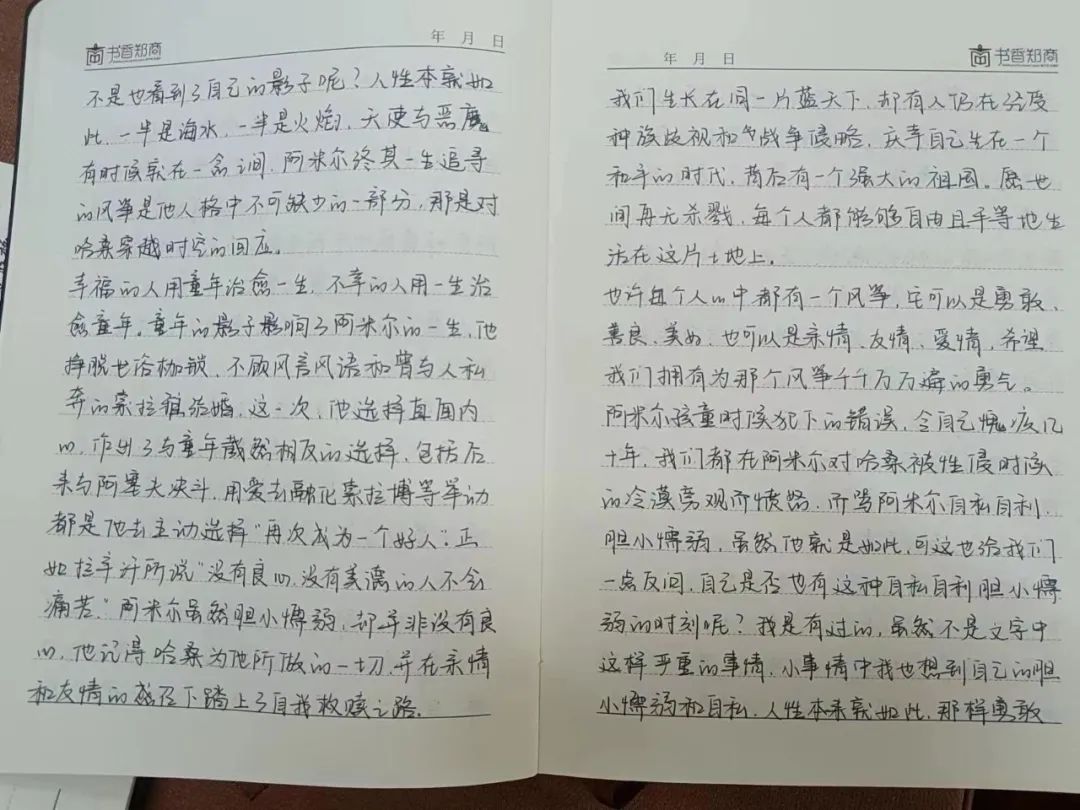 书香郑商
年 月 日
不是也看到了自己的影子呢？人性本就如
此，一半是海水，一半是火焰，天使与恶魔
有时候就在一念之间，阿米尔终其一生追寻
的风筝是他人格中不可缺少的一部分，那是对
哈桑穿越时空的回应。
幸福的人用童年治愈一生，不幸的人用一生治
愈童年。童年的影子影响了阿米尔的一生，他
挣脱世俗枷锁，不顾风言风语和曾与人私
奔的索拉雅结婚，这一次，他选择直面内
心，作出了与童年截然相反的选择，包括后
来与阿塞夫决斗，用爱去融化索拉博等举动
都是他去主动选择“再次成为一个好人”。正
如拉辛汗所说“没有良心，没有美德的人不会
痛苦。”阿米尔虽然胆小懦弱，却并非没有良
心，他记得哈桑为他所做的一切，并在亲情
和友情的感召下踏上了自我救赎之路。
年 月 日
书香郑商
我们生长在同一片蓝天下，却有人仍在经受
种族歧视和战争侵略，庆幸自己生在一个
和平的时代，背后有一个强大的祖国。愿世
间再无杀戮，每个人都能够自由且平等地生
活在这片土地上。
也许每个人心中都有一个风筝，它可以是勇敢、
善良、美好，也可以是亲情、友情、爱情，希望
我们拥有为那个风筝千千万万遍的勇气。
阿米尔孩童时候犯下的错误，令自己愧疚几
十年，我们都在阿米尔对哈桑被性侵时候
的冷漠旁观而愤怒，而骂阿米尔自私自利，
胆小懦弱，虽然他就是如此，可这也给我们
一点反问，自己是否也有这种自私自利胆小懦
弱的时刻呢？我是有过的，虽然不是文字中
这样严重的事情，小事情中我也想到自己的胆
小懦弱和自私，人性本来就如此，那样勇敢